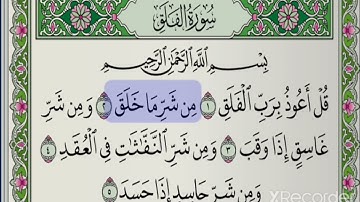 سُورَةُ الْفَلَقِ
بِسْمِ اللَّهِ الرَّحْمَٰنِ الرَّحِيمِ
قُلْ أَعُوذُ بِرَبِّ الْفَلَقِ ١ مِن شَرِّ مَا خَلَقَ ٢ وَمِن شَرِّ
غَاسِقٍ إِذَا وَقَبَ ٣ وَمِن شَرِّ النَّفَّٰثَٰتِ فِي الْعُقَدِ ٤
وَمِن شَرِّ حَاسِدٍ إِذَا حَسَدَ ٥
XRecorder